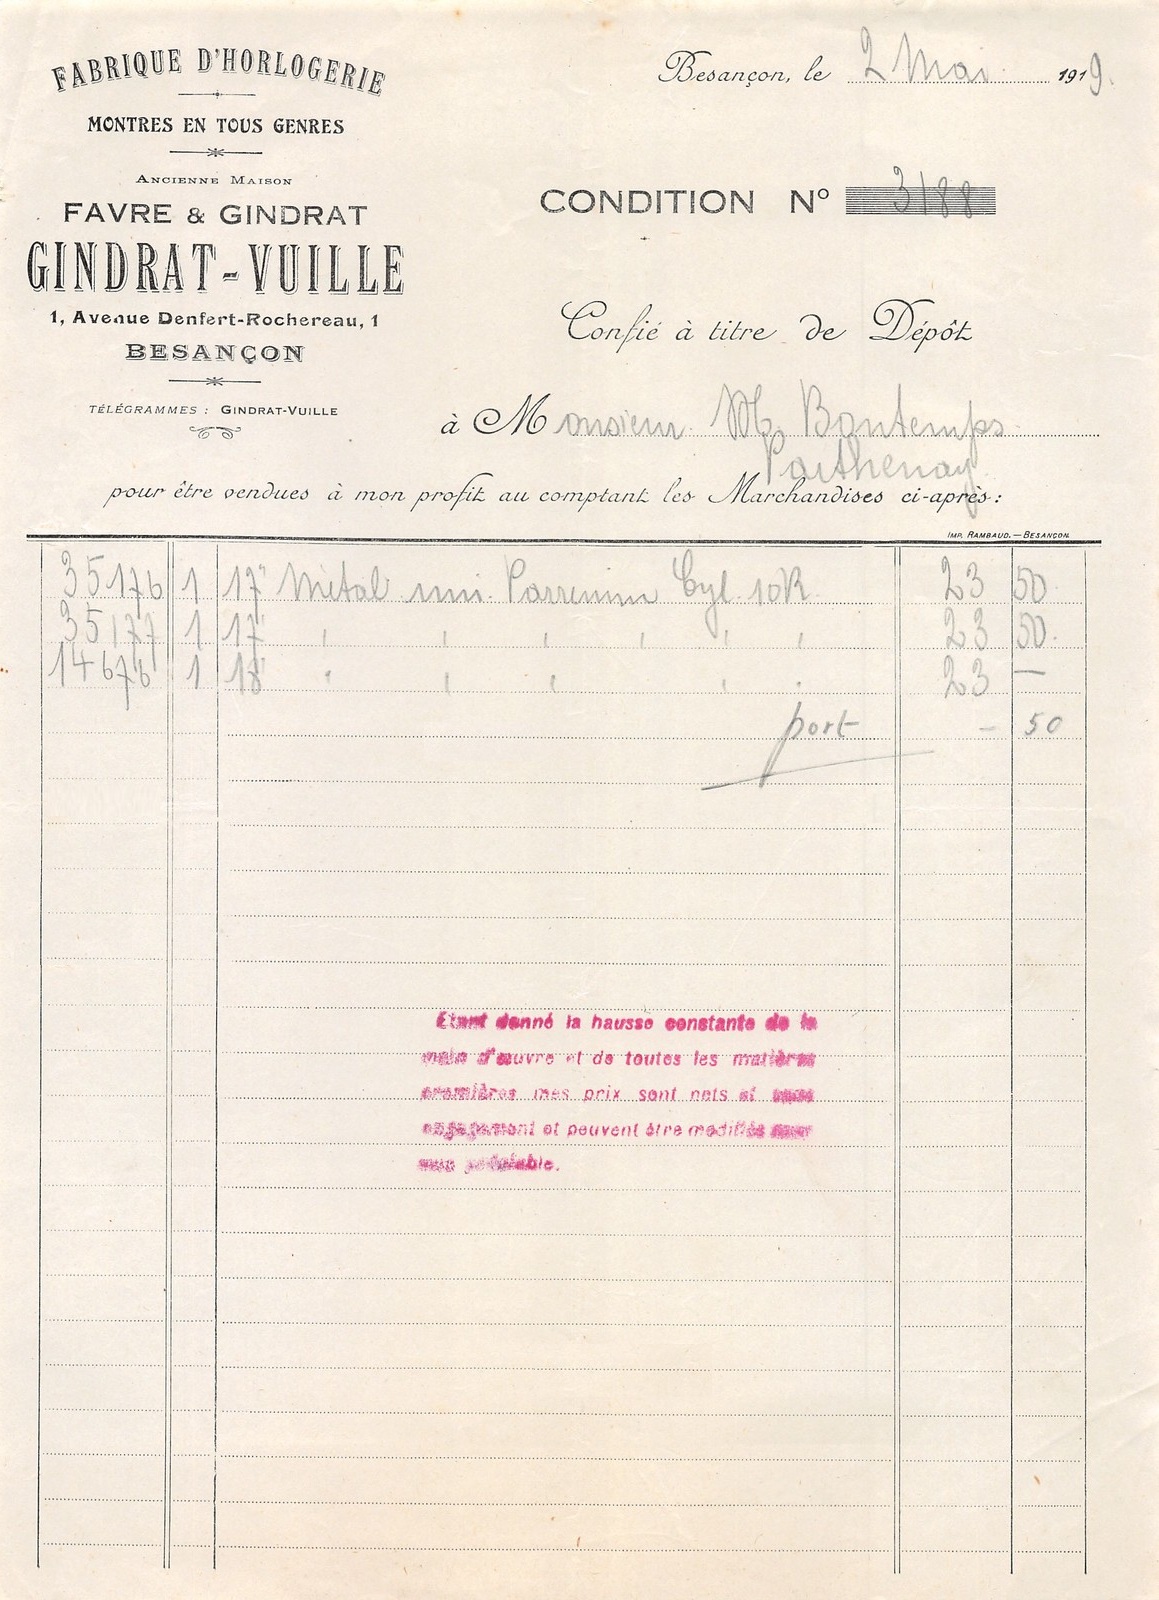 FABRIQUE D'HORLOGERIE
MONTRES EN TOUS GENRES
ANCIENNE MAISON
FAVRE & GINDRAT
GINDRAT-VUILLE
1, Avenue Denfert-Rochereau, 1
BESANÇON
TÉLÉGRAMMES : GINDRAT-VUILLE
Besançon, le 2 Mai 1919.
CONDITION N° 3188
Confié à titre de Dépôt
à Monsieur M. Bontemps
Parthenay
pour être vendues à mon profit au comptant les Marchandises ci-après :
IMP. RAMBAUD. — BESANÇON
35176 1 17" Métal uni Parrenin Cyl. 10R 23 50
35177 1 17" " " " " " " 23 50
14676 1 18" " " " " " 23 —
port - 50
Etant donné la hausse constante de la
main d'œuvre et de toutes les matières
premières mes prix sont nets et sans
engagement et peuvent être modifiés sans
avis préalable.